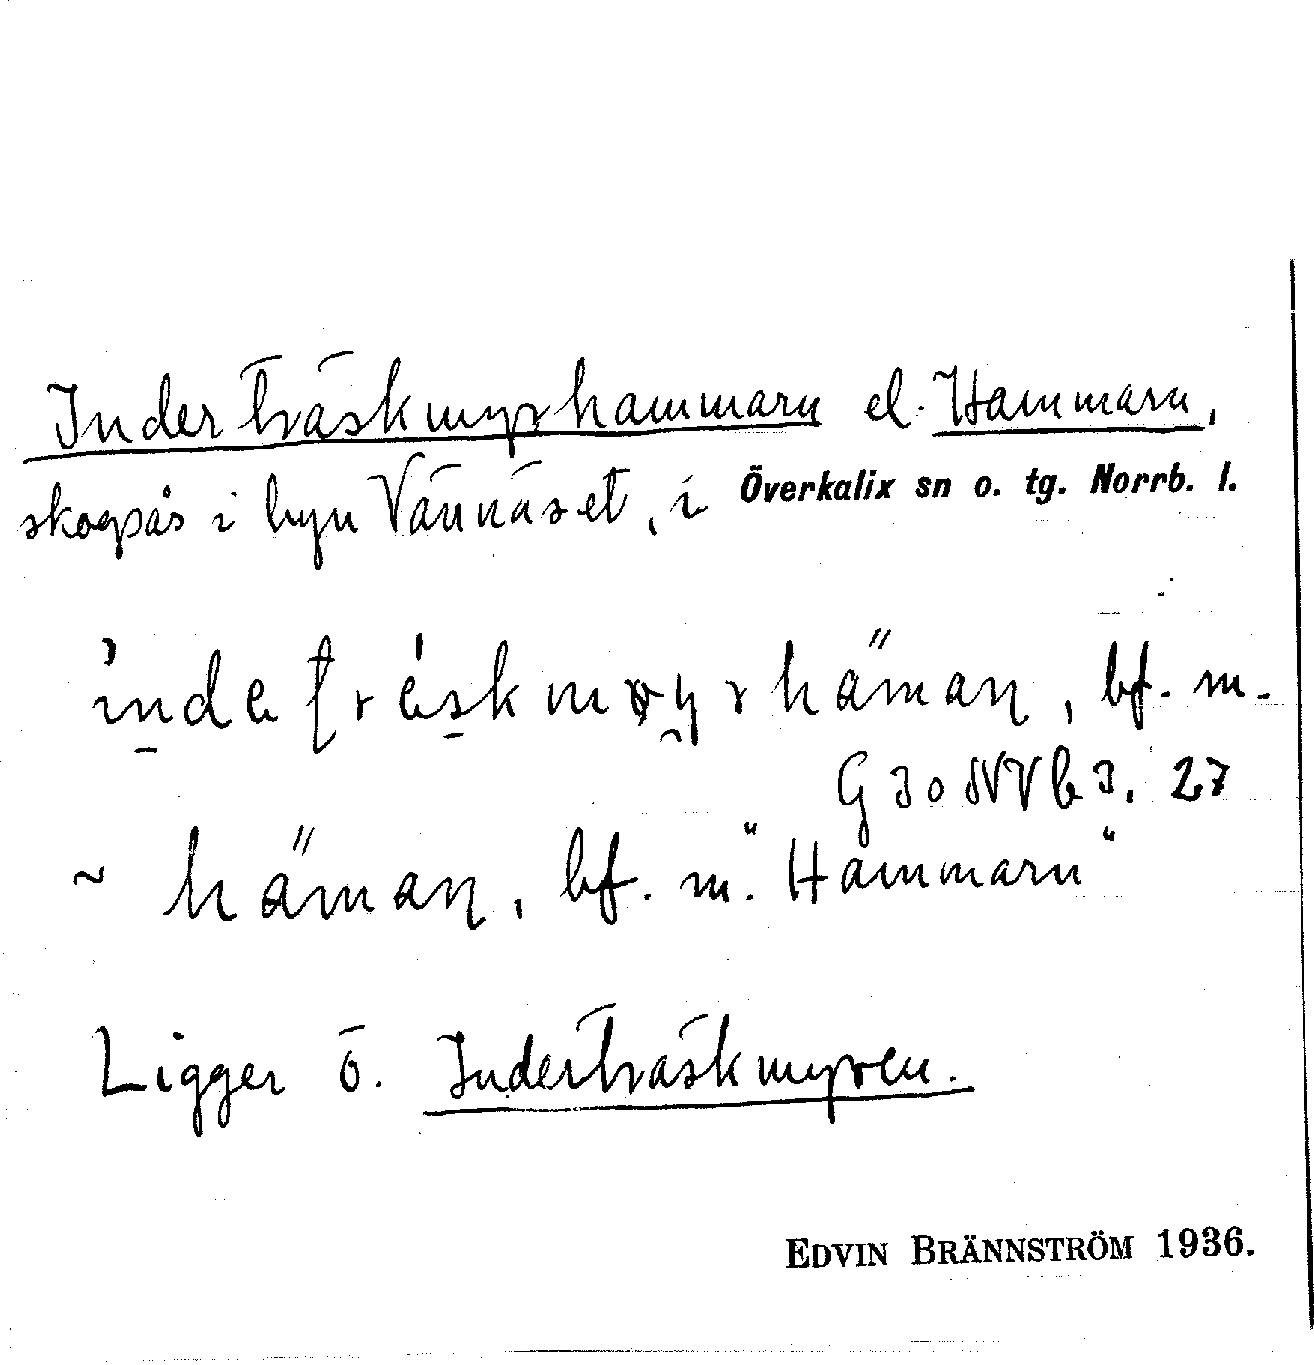 Inderträskmyrhammarn el. Hammarn,
skogsås i byn Vännäset, i Överkalix sn o. tg. Norrb. l.
bf. m.
G 30 NV b 3. 27
~ häman, bf. m. "Hammarn"
Ligger ö. Inderträskmyren.
EDVIN BRÄNNSTRÖM 1936.